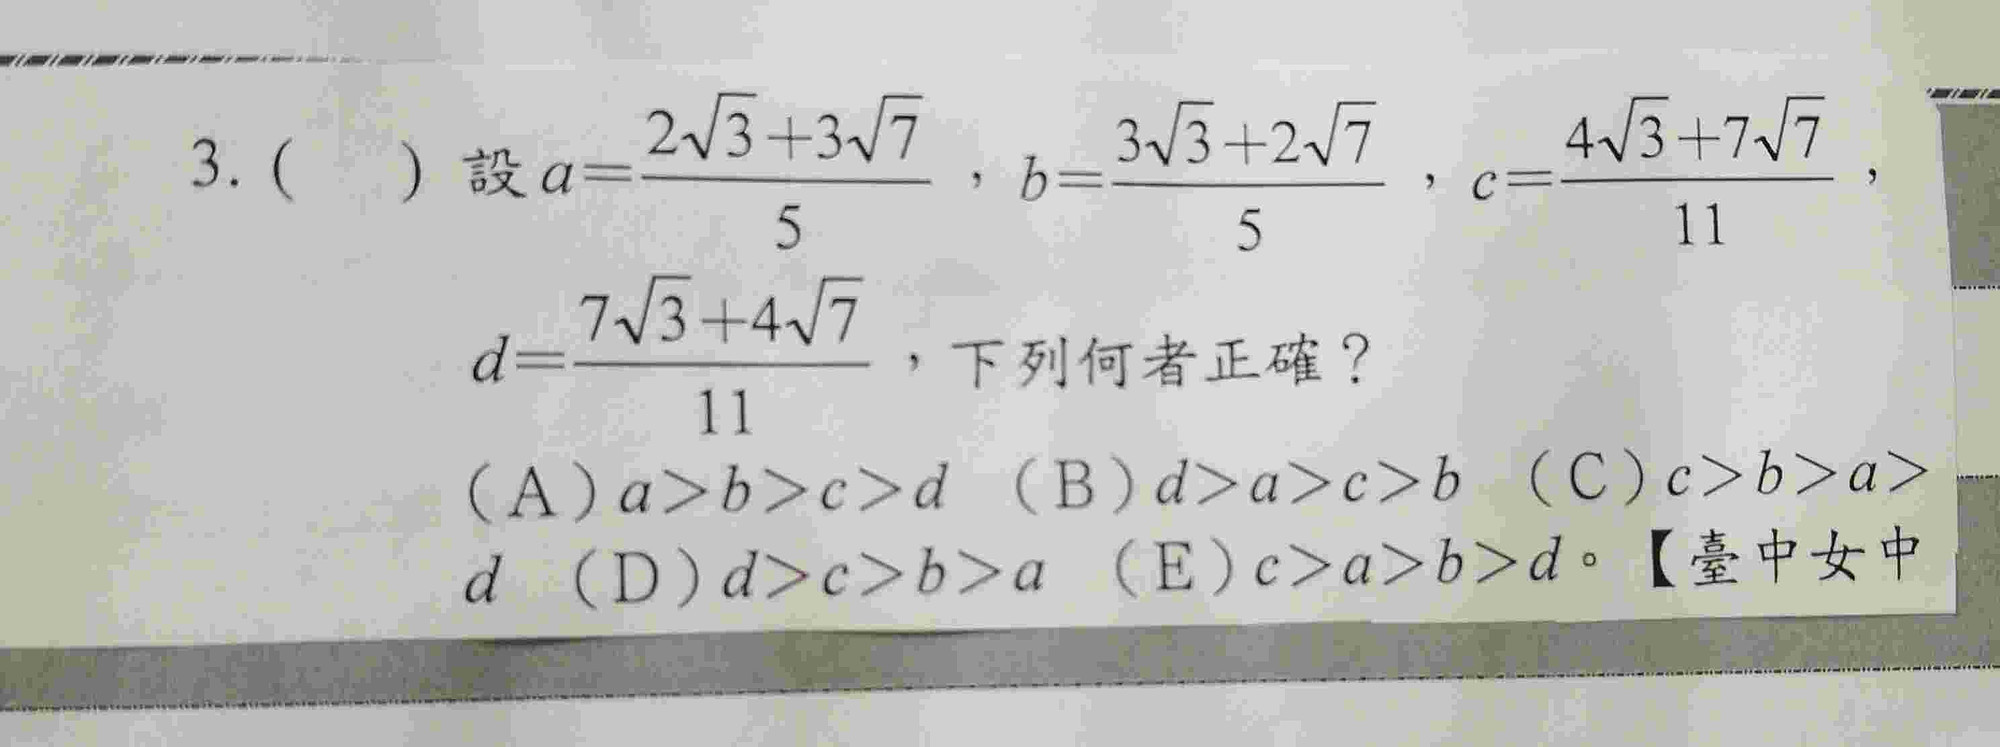 3. (　　) 設 a=\frac{2\sqrt{3}+3\sqrt{7}}{5}，b=\frac{3\sqrt{3}+2\sqrt{7}}{5}，c=\frac{4\sqrt{3}+7\sqrt{7}}{11}，
d=\frac{7\sqrt{3}+4\sqrt{7}}{11}，下列何者正確？
(A) a>b>c>d (B) d>a>c>b (C) c>b>a>
d (D) d>c>b>a (E) c>a>b>d。【臺中女中